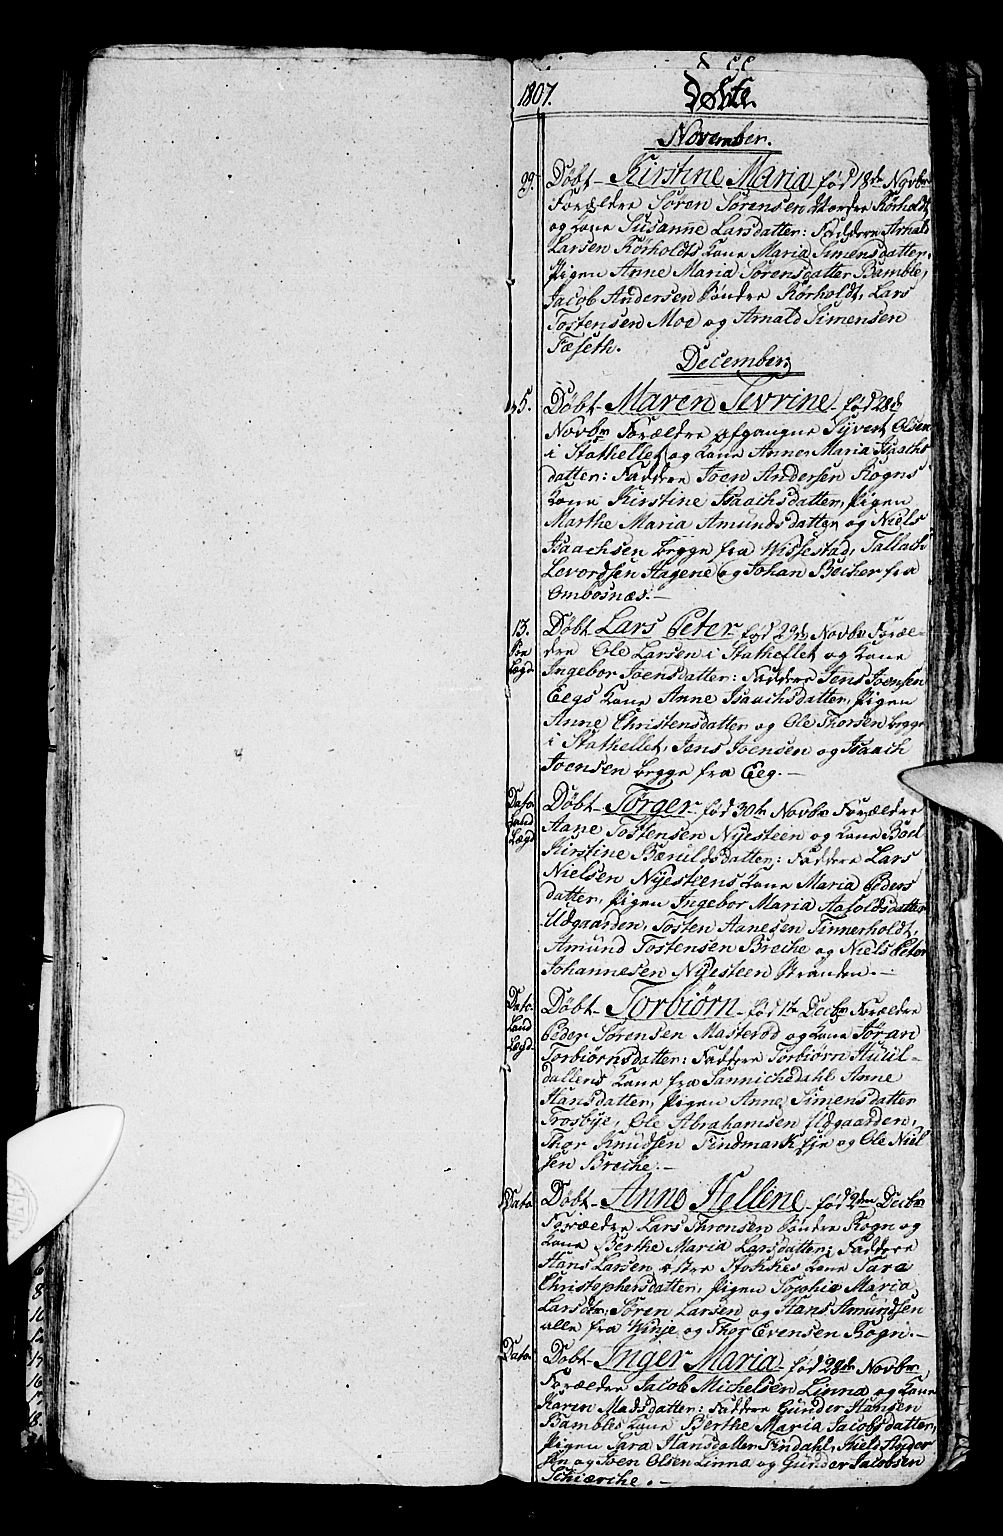 1807.
Døbte
November.
29. Døbt Kirstine Maria født 18de Novbr
Forældre Søren Sørensen Nordre Rørholdt
og Kone Susanne Larsdatter: Faddere Arnold
Larsen Rørholdts Kone Maria Simensdatter,
Pigen Anne Maria Sørensdatter Bamble,
Jacob Andersen Søndre Rørholdt, Lars
Tostensen Moe og Arnold Simensen
Fæseth.
December.
5. Døbt Maren Sevrine født 28de
Novbr Forældre afgangne Syvert Olsen
i Stathellet og Kone Anne Maria Isachs
datter: Faddere Joen Andersen Rogns
Kone Kirstine Isaachsdatter, Pigen
Marthe Maria Amundsdatter og Niels
Isaachsen begge fra Wissestad, Tallach
Levordsen Hagene og Johan Becher fra
Ombosnæs.
13. Døbt Lars Peter født 29de Novbr Foræl-
dre Ole Larsen i Stathellet og Kone
Lægd Ingebor Joensdatter: Faddere Jens Joensen
Eegs Kone Anne Isaachsdatter, Pigen
Anne Christensdatter og Ole Thorsen begge
i Stathellet, Jens Joensen og Isaach
Joensen begge fra Eeg.
Dato Døbt Tørger født 30te Novbr Forældre
Land Aane Tostensen Nyesteen og Kone Boel
Lægd Kirstine Bæruldsdatter: Faddere Lars
Nielsen Nyesteens Kone Maria Peders
datter, Pigen Ingebor Maria Aasoldsdatter
Udgaarden, Tosten Aanesen Tinnerholdt,
Amund Tostensen Breche og Niels Peter
Johannesen Nyesteen Stranden.
Dato Døbt Torbiørn født 1te Decbr Forældre
Land Peder Sørensen Masterød og Kone Jøran
Lægd Torbiørnsdatter: Faddere Torbiørn
dallens Kone fra Sannichedahl Anne
Hansdatter, Pigen Anne Simensdatter
Trosbye, Ole Abrahamsen Udgaarden,
Thor Knudsen Findmark Eje og Ole Niel
sen Breche.
Dato Døbt Anne Hellene født 2den Decbr
Forældre Lars Thronsen Søndre Rogn og
Kone Berthe Maria Larsdatter: Faddere
Hans Larsen østre Stokkes Kone Sara
Christophersdatter, Pigen Sophie Maria
Larsdtr, Søren Larsen og Hans Amundsen
alle fra Winje og Thor Evensen Rogn.
Dato Døbt Inger Maria født 28de Novbr
Forældre Jacob Michelsen Linna og Kone
Karen Madsdatter: Faddere Gunder Hansen
Bambles Kone Berthe Maria Jacobsdatter,
Pigen Sara Hansdatter Findahl, Kield Ander
sen og Joen Olsen Linna og Gunder Jacobsen
Schierche.
6
8
10
12
15
16
17
18